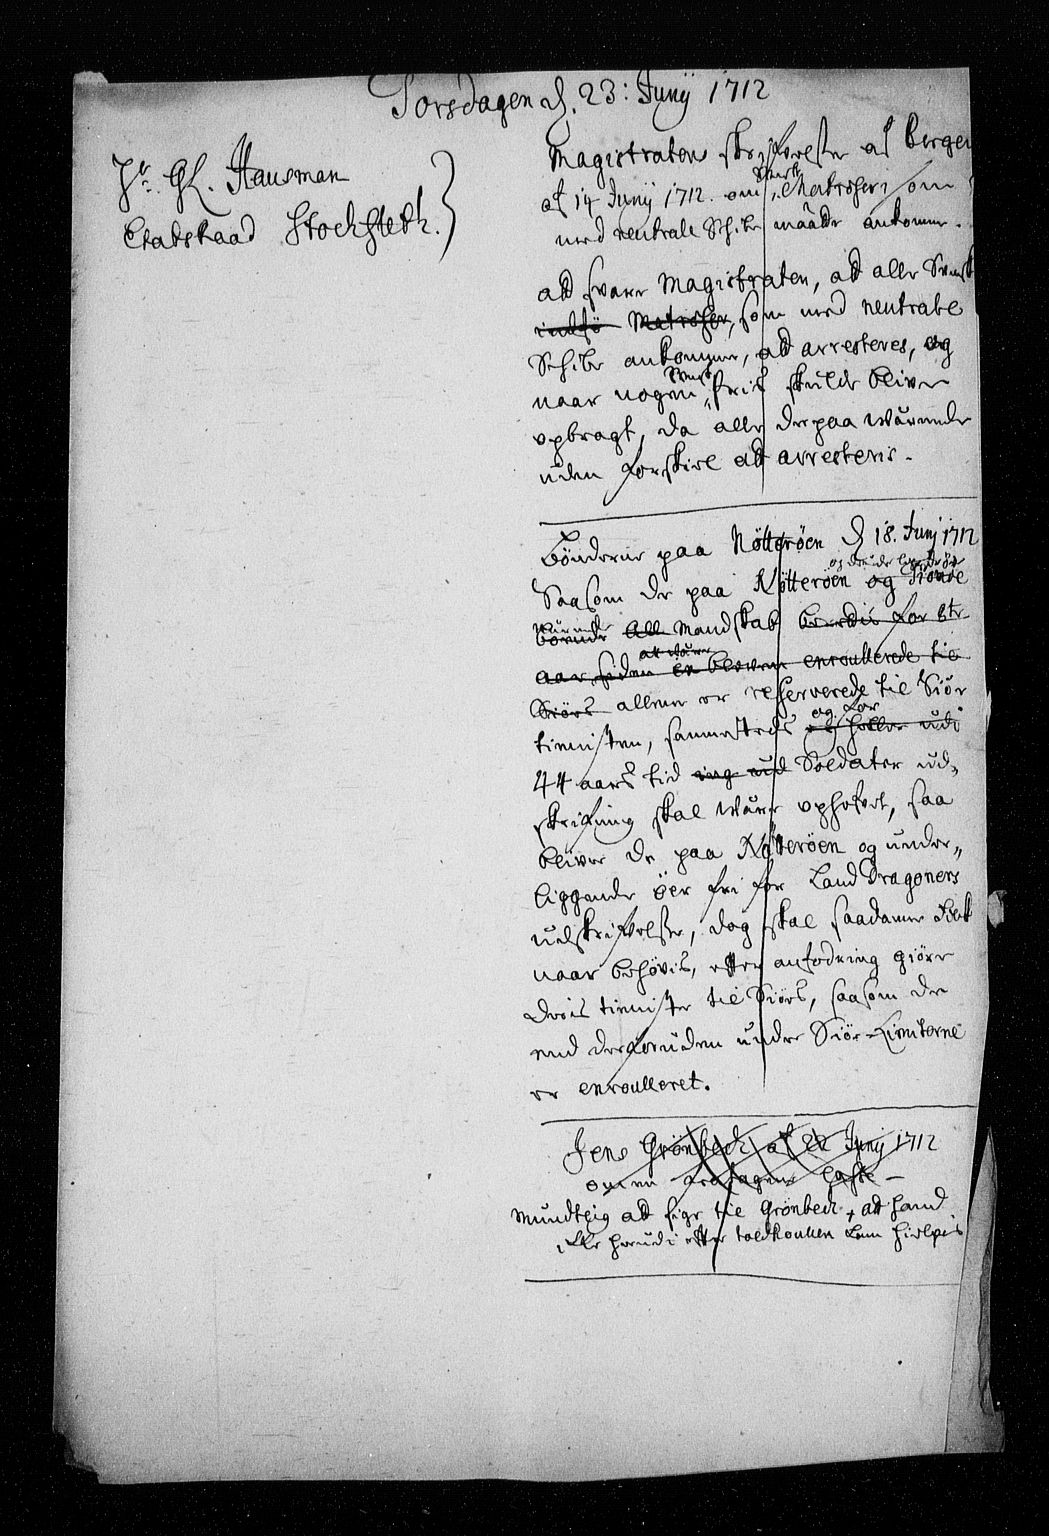 Torsdagen d. 23: Junij 1712
Hr. Gl. Hausman
Etatsraad Stochfleth.
Magistratens skrifvelse af Bergen
af 14 Junij 1712. om Svensk Matroser, som
med neutrale Schibe maatte ankomme.
att svare Magistraten, att alle Svensk
Matroser, som med neutrale
Schibe ankommer, att arresteres, og
naar nogen Svensk Pris skulde blive
opbragt, da alle derpaa værende
uden forskiel att arresteris.
Bønderne paa Nötterøen d 18. Junij 1712
Saasom de paa Nötterøen og
værende all Mandskab beredis for otte
aar siden er bleven enroullerede til
Siøes allene er reserverede til Siøe
tienisten, sammesteds og for
44 aars tid Soldater ud-
skrifning skal være ophefvet, saa
bliver de paa Nötterøen og under-
liggende öer fri for Land Dragoners
udskrifvelse, dog skal saadanne Folk
naar behøvis, efter anfodring giøre
deris tieniste til Siøes, saasom de
end desforuden under Siøe-Limiterne
er enroulleret.
Jens Grønbech af 22 Junij 1712
om en
Mundtlig att sige til Grønbech, att hand
ikke herudi efter toldroullen kan hielpis